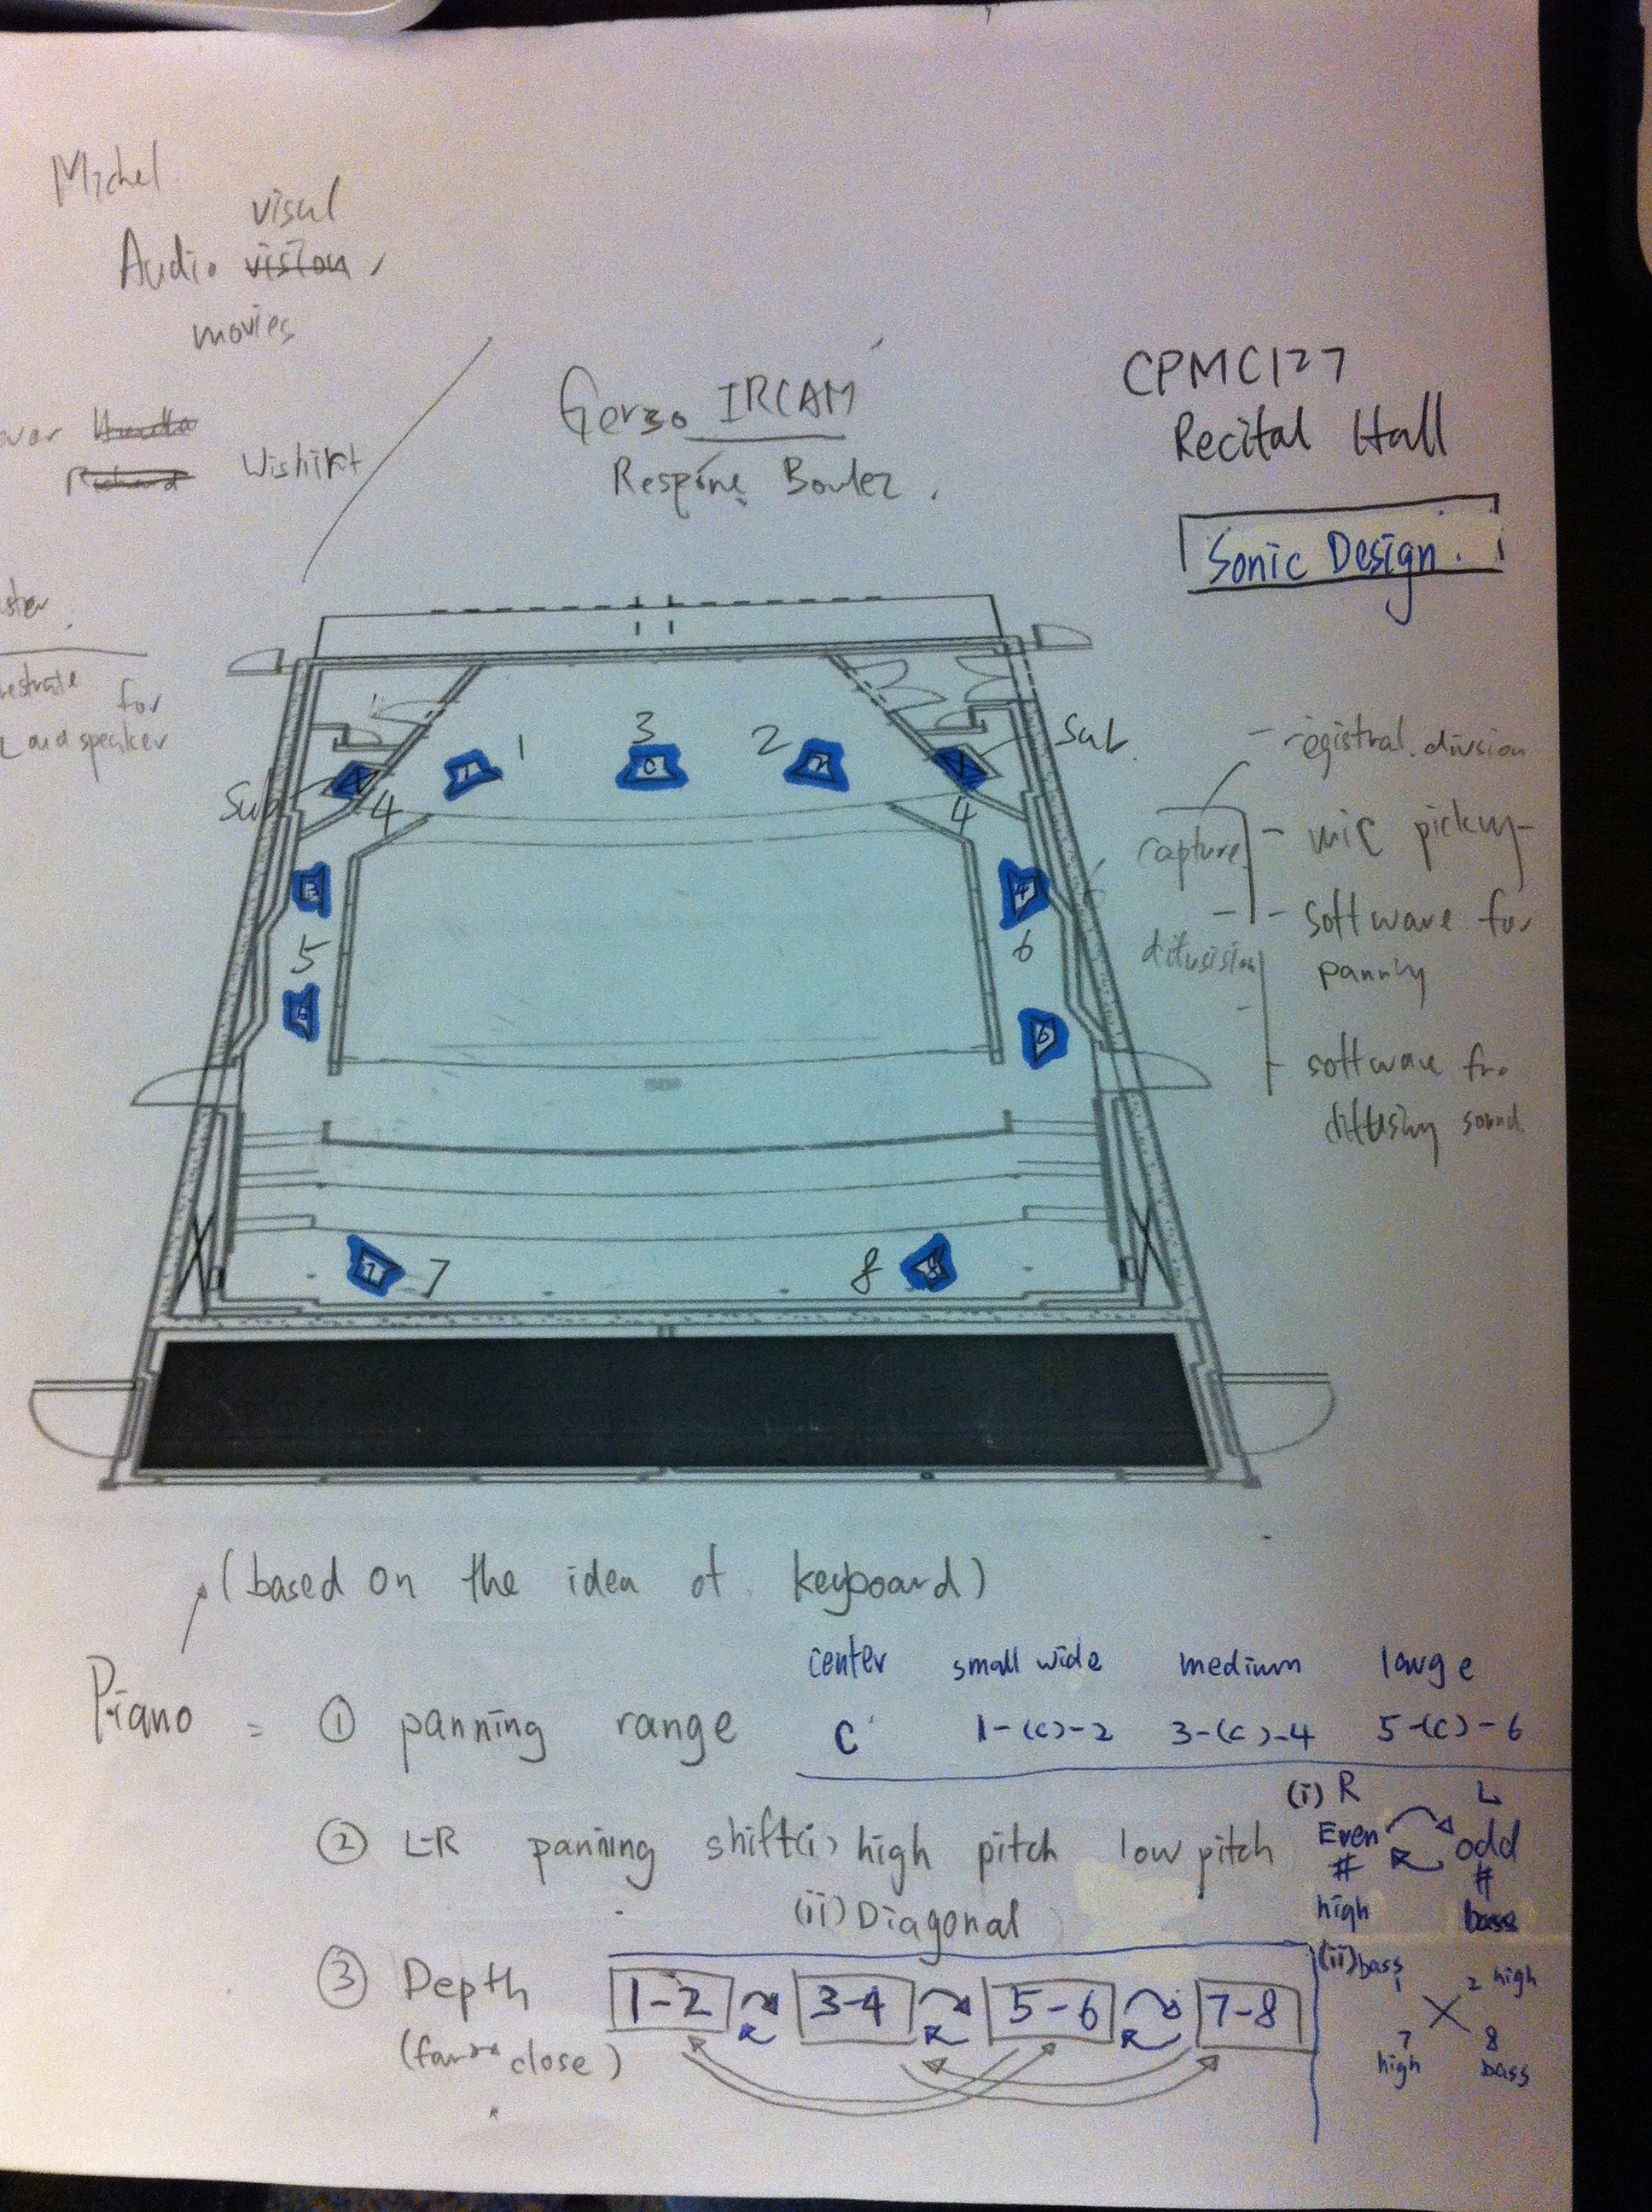 Michel
visul
Audio vision,
movies
Wishirt
Gerzo IRCAM
Boulez.
CPMC127
Recital Hall
Sonic Design.
for
Loudspeaker
1
3
2
1
C
2
Sub
Sub
4
4
3
4
5
6
5
6
7
7
8
8
- registral division
capture
- mic pickup
- software for
panning
software for
diffusing sound
(based on the idea of keyboard)
center small wide medium large
Piano = ① panning range C 1-(c)-2 3-(c)-4 5-(c)-6
② L-R panning shift (i) high pitch low pitch
(i) R L
Even odd
# #
high bass
(ii) Diagonal
③ Depth 1-2 3-4 5-6 7-8
(far close)
(ii) bass 1 2 high
7 8
high bass